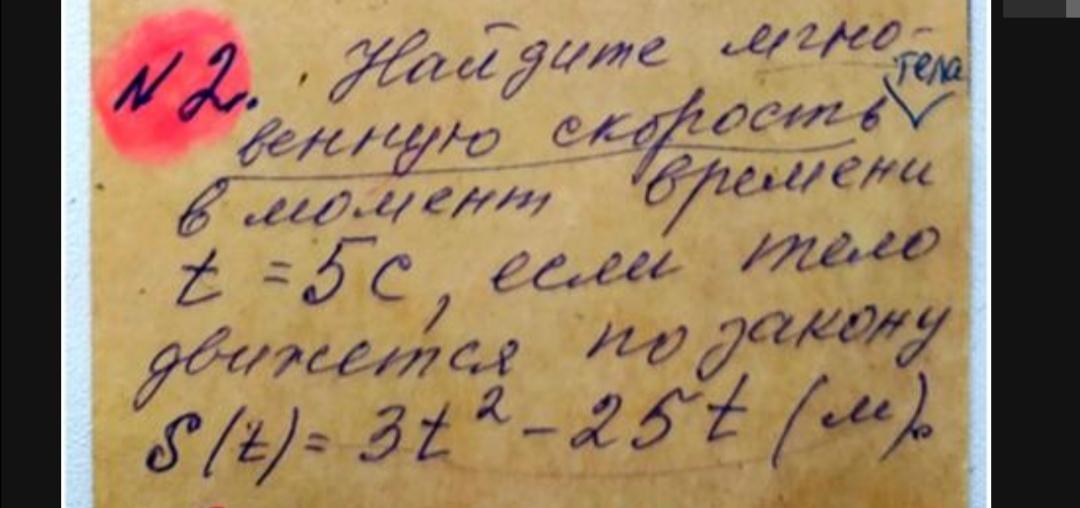 №2. Найдите мгно-
венную скорость тела
в момент времени
t = 5 с, если тело
движется по закону
S(t) = 3t² - 25t (м).